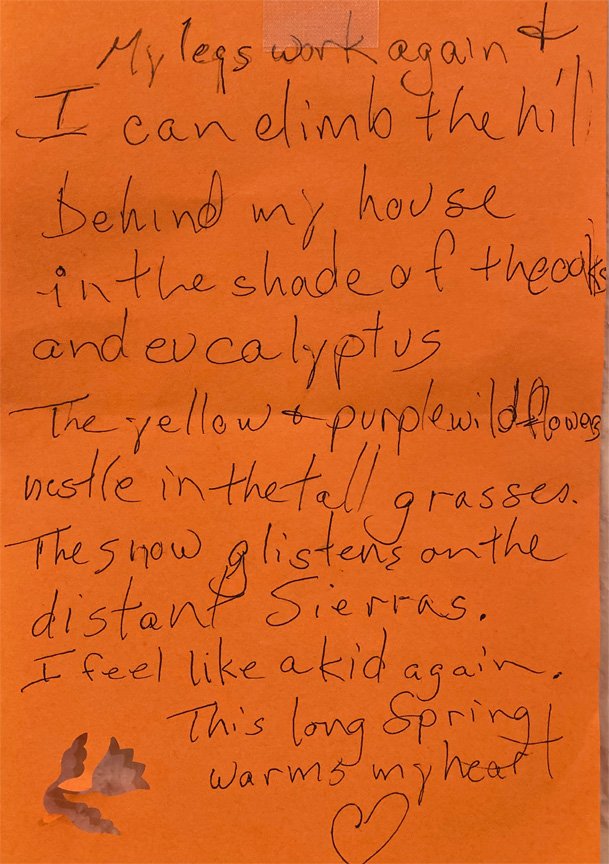 My legs work again &
I can climb the hill
Behind my house
in the shade of the oaks
and eucalyptus
The yellow & purple wild flowers
nestle in the tall grasses.
The snow glistens on the
distant Sierras.
I feel like a kid again.
This long Spring
warms my heart